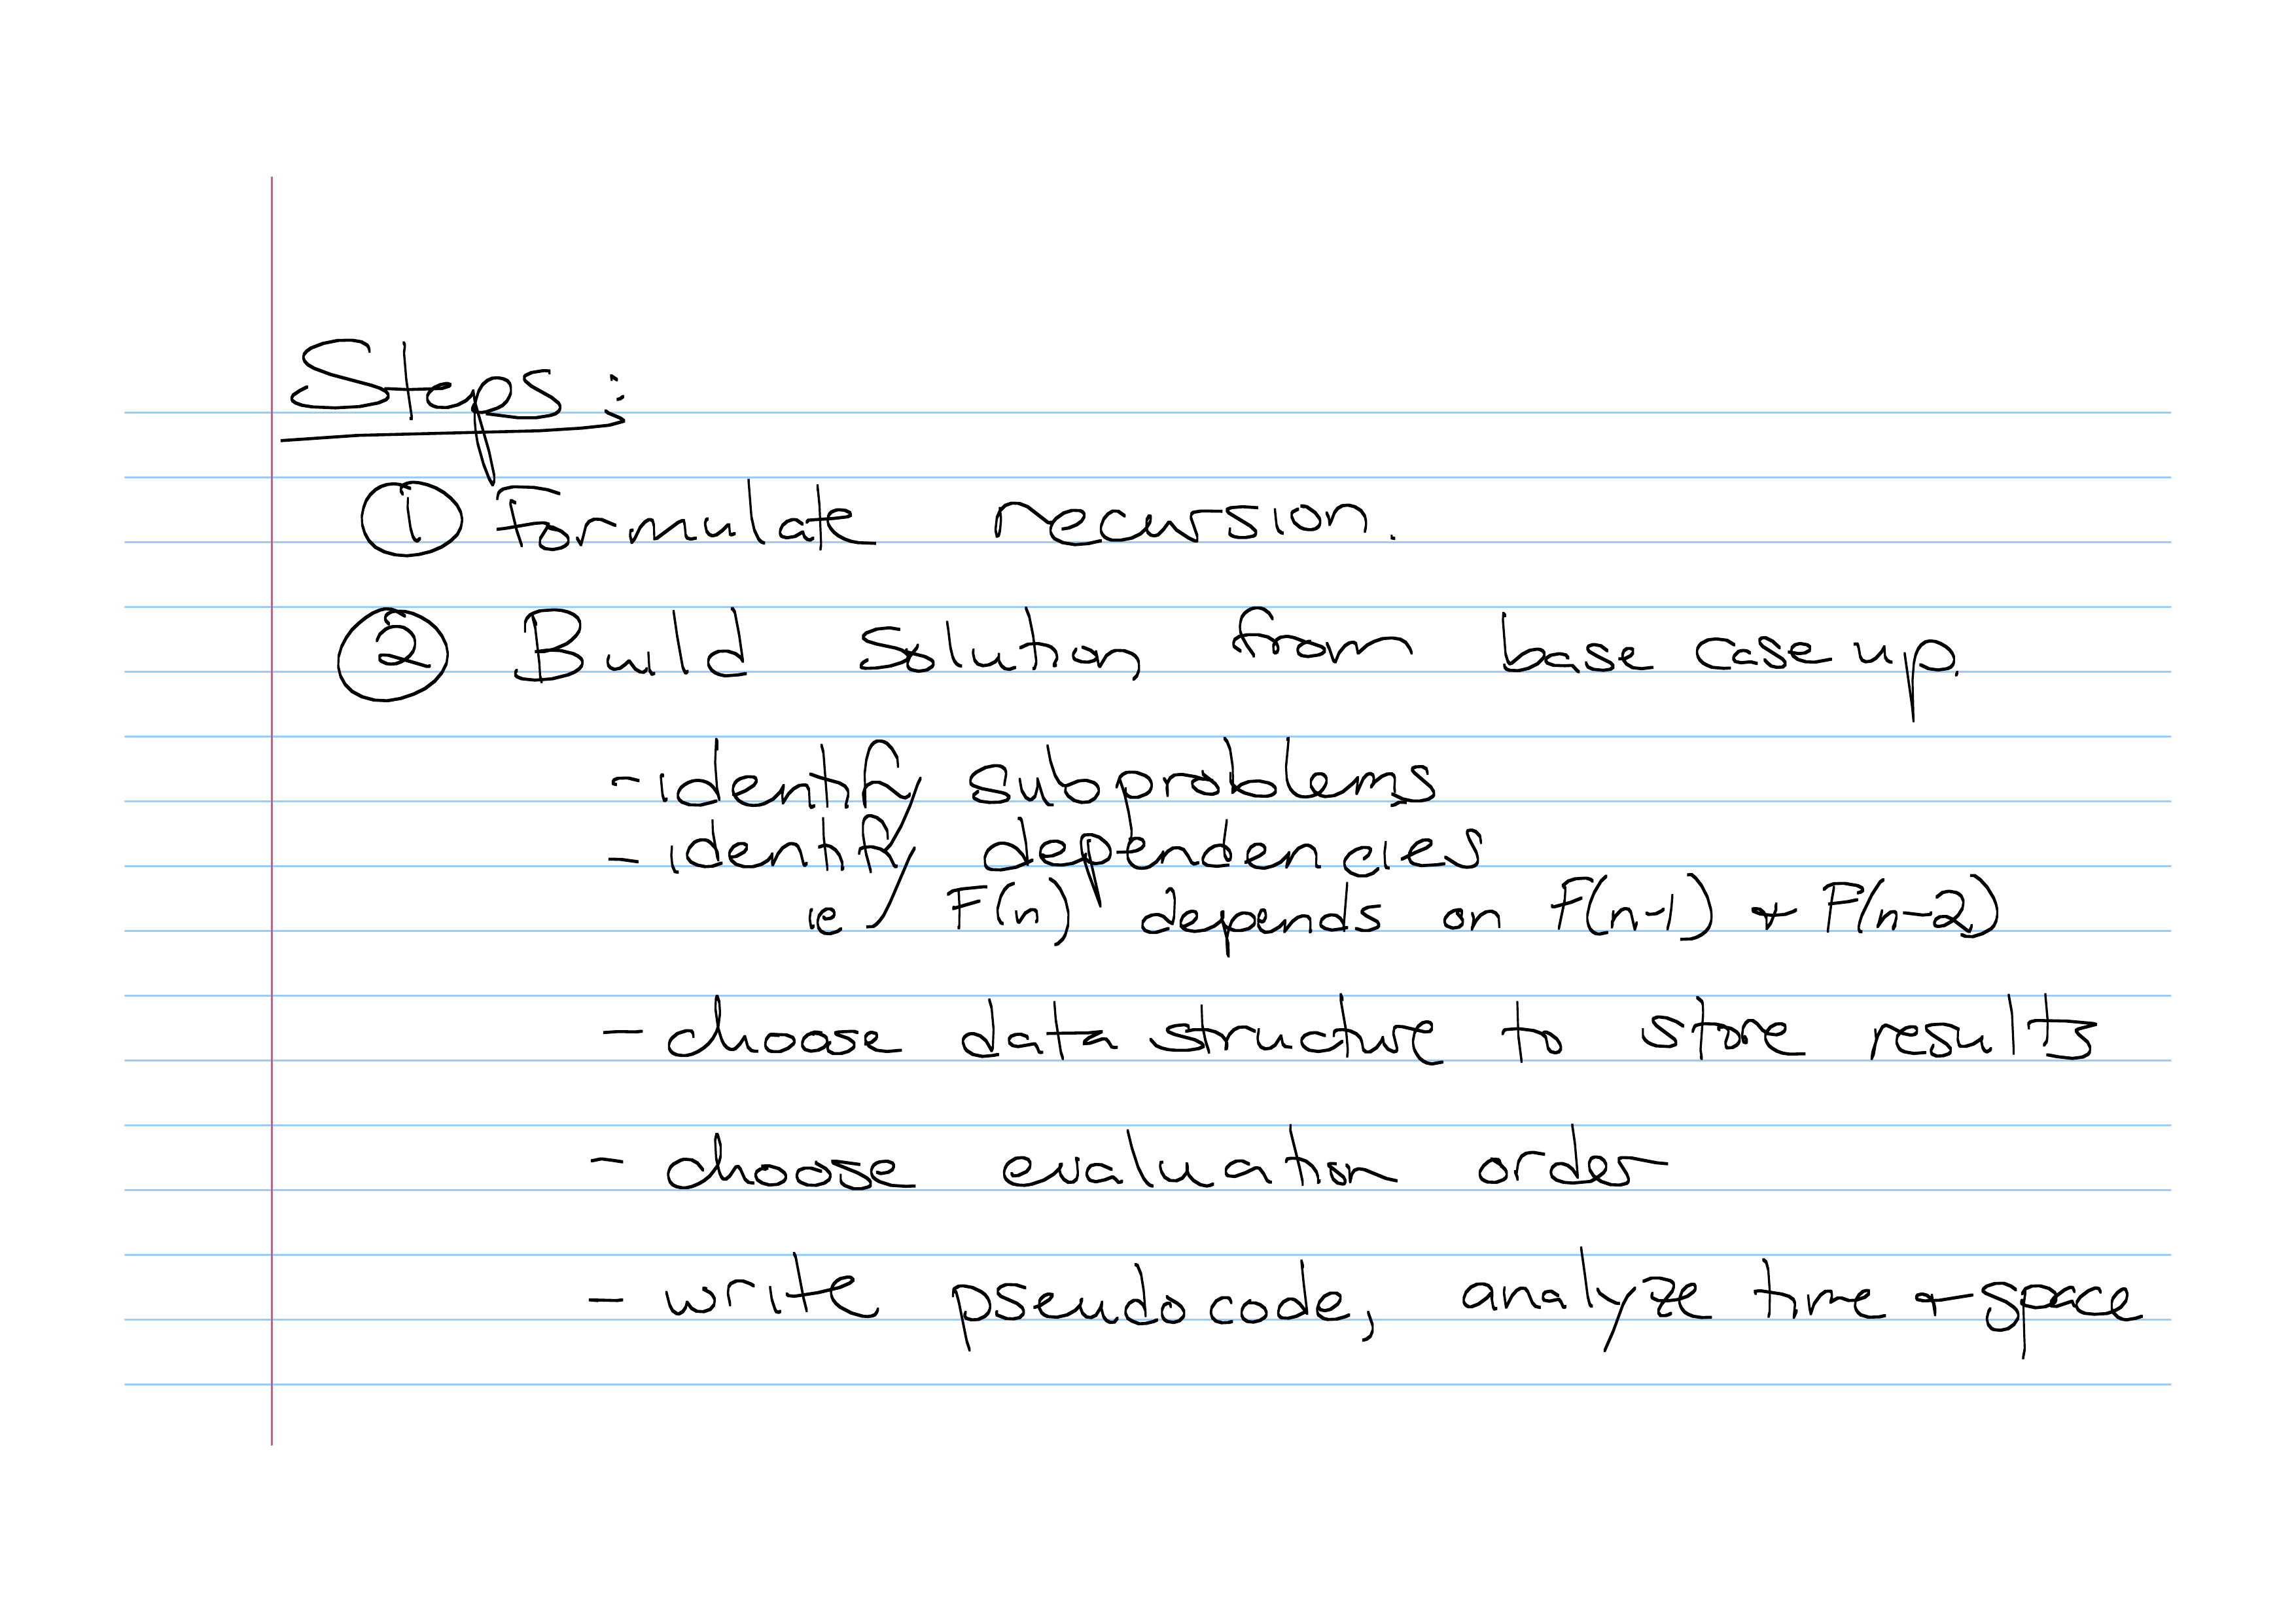 Steps:
① Formulate recursion.
② Build solution, from base case up.
- identify subproblems
- identify dependencies
ie F(n) depends on F(n-1) + F(n-2)
- choose data structure to store results
- choose evaluation order
- write pseudocode, analyze time + space